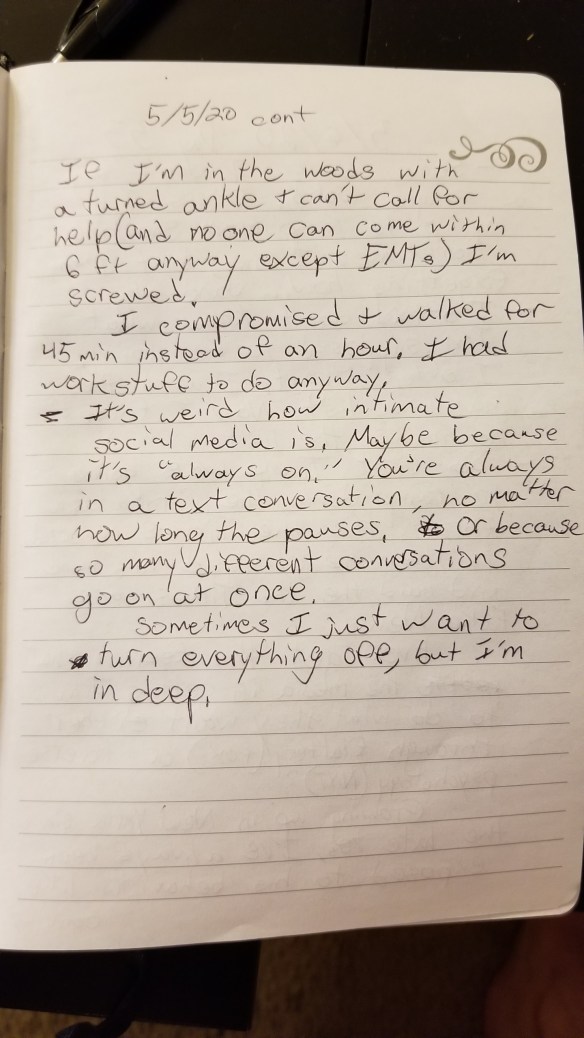 5/5/20 cont
If I'm in the woods with
a turned ankle + can't call for
help (and no one can come within
6 ft anyway except EMTs) I'm
screwed.
I compromised + walked for
45 min instead of an hour. I had
work stuff to do anyway.
- It's weird how intimate
social media is. Maybe because
it's "always on." You're always
in a text conversation, no matter
how long the pauses. Or because
so many different conversations
go on at once.
Sometimes I just want to
turn everything off, but I'm
in deep.